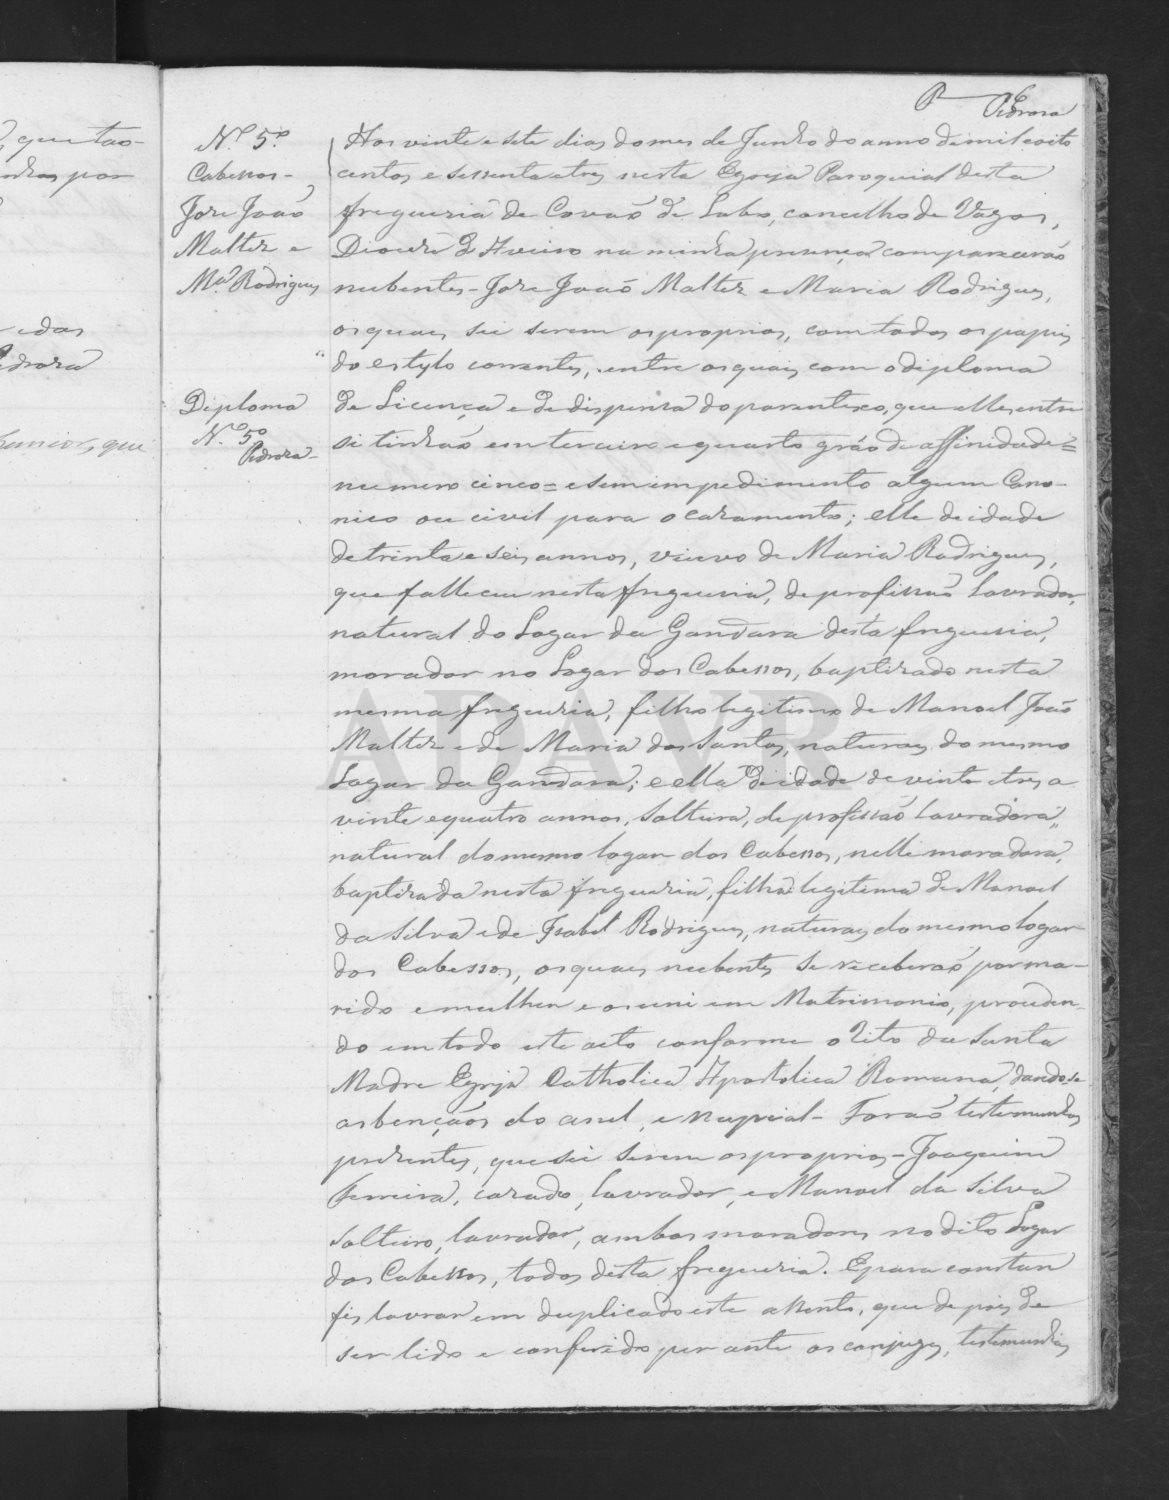 6
Pedroza
, que tao-
nhas por
e das
Pedroza
Junior, que
N.º 5º
Cabessos -
Joze Joaõ
Malter e
M.ª Rodrigues
Diploma
N.º 5º
Pedroza -
Aos vinte e sete dias do mes de Junho do anno de mil e oito
centos e sessenta e tres nesta Egreja Paroquial desta
freguezia de Covaõ de Lobo, concelho de Vagos,
Diocese de Aveiro na minha prezença compareceraõ
nubentes - Joze Joaõ Malter e Maria Rodrigues,
os quaes sei serem os proprios, com todos os papeis
do estylo correntes, entre os quaes com o diploma
de Licença e de dispensa do parentesco, que elles entre
si tinhaõ em terceiro e quarto gráo de affinidade =
numero cinco = e sem impedimento algum Cano-
nico ou civil para o cazamento; elle de idade
de trinta e seis annos, viuvo de Maria Rodrigues,
que falleceu nesta freguezia, de profissaõ Lavrador,
natural do Logar da Gandara desta freguezia,
morador no Logar dos Cabessos, baptizado nesta
mesma freguezia, filho legitimo de Manoel Joaõ
Malter e de Maria dos Santos, naturaes do mesmo
Logar da Gandara; e ella de idade de vinte e tres a
vinte e quatro annos, Solteira, de profissaõ Lavradora,
natural do mesmo logar dos Cabessos, nelle moradora,
baptizada nesta freguezia, filha legitima de Manoel
da Silva e de Izabel Rodrigues, naturaes do mesmo logar
dos Cabessos, os quaes nubentes se receberaõ por ma-
rido e mulher e os uni em Matrimonio, proceden-
do em todo este acto conforme o Rito da Santa
Madre Egreja Catholica Apostolica Romana, dando-se
as bençaõs do anel, e nupcial - Foraõ testemunhas
prezentes, que sei serem os proprios - Joaquim
Ferreira, cazado, lavrador, e Manoel da Silva
Solteiro, lavrador, ambos moradores no dito Logar
dos Cabessos, todos desta freguezia. E para constar
fis lavrar em duplicado este assento, que depois de
ser lido e conferido perante os conjuges, testemunhas
ADAVR